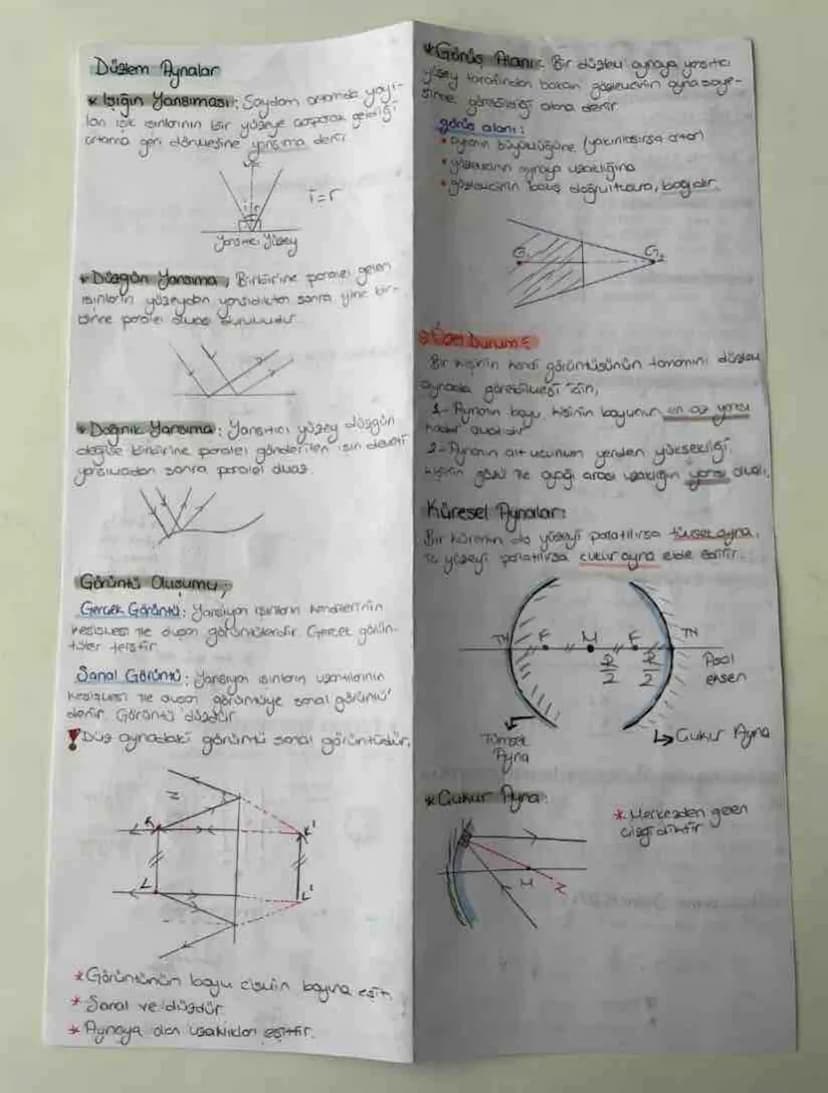 Düzlem Aynalar
* Işığın Yansıması: Saydam ortamda yayı-
lan ışık ışınlarının bir yüzeye çarparak geldiği
ortama geri dönmesine yansıma denir
N
i r
i=r
Yansıtıcı Yüzey
* Düzgün Yansıma, Birbirine paralel gelen
ışınların yüzeyden yansıdıktan sonra yine bir-
birine paralel olması durumudur.
* Dağınık Yansıma: Yansıtıcı yüzey düzgün
değilse birbirine paralel gönderilen ışın demeti
yansımadan sonra paralel olmaz.
Görüntü Oluşumu;
Gerçek Görüntü: Yansıyan ışınların kendilerinin
kesişmesi ile oluşan görüntülerdir Gerçek görün-
tüler terstir.
Sanal Görüntü: Yansıyan ışınların uzantılarının
kesişmesi ile oluşan görüntüye sanal görüntü
denir Görüntü düzdür
Düz aynadaki görüntü sanal görüntüdür.
N
K K'
L L'
* Görüntünün boyu cismin boyuna eşit
* Sanal ve düzdür
* Aynaya olan uzaklıkları eşittir.
* Görüş Alanı: Bir düzlem aynaya yansıtıcı
yüzey tarafından bakan gözlemcinin ayna saye-
sinde görebildiği alana denir
görüş alanı:
• aynanın büyüklüğüne (yakınlaşırsa artar)
• gözlemcinin aynaya uzaklığına
• gözlemcinin bakış doğrultusuna, bağlıdır.
G₁ G₂
Özel Durum:
Bir kişinin kendi görüntüsünün tamamını düzlem
aynada görebilmesi için,
1- Aynanın boyu, kişinin boyunun en az yarısı
kadar olmalıdır
2- Aynanın alt ucunun yerden yüksekliği,
kişinin gözü ile ayağı arası uzaklığın yarısı olmalı.
Küresel Aynalar:
Bir kürenin dış yüzeyi parlatılırsa tümsek ayna,
iç yüzeyi parlatılırsa çukur ayna elde edilir.
TN F M F TN
R/2 R/2
Asal
eksen
Tümsek
Ayna
Çukur Ayna
* Çukur Ayna:
* Merkezden geçen
çizgi diktir
M N